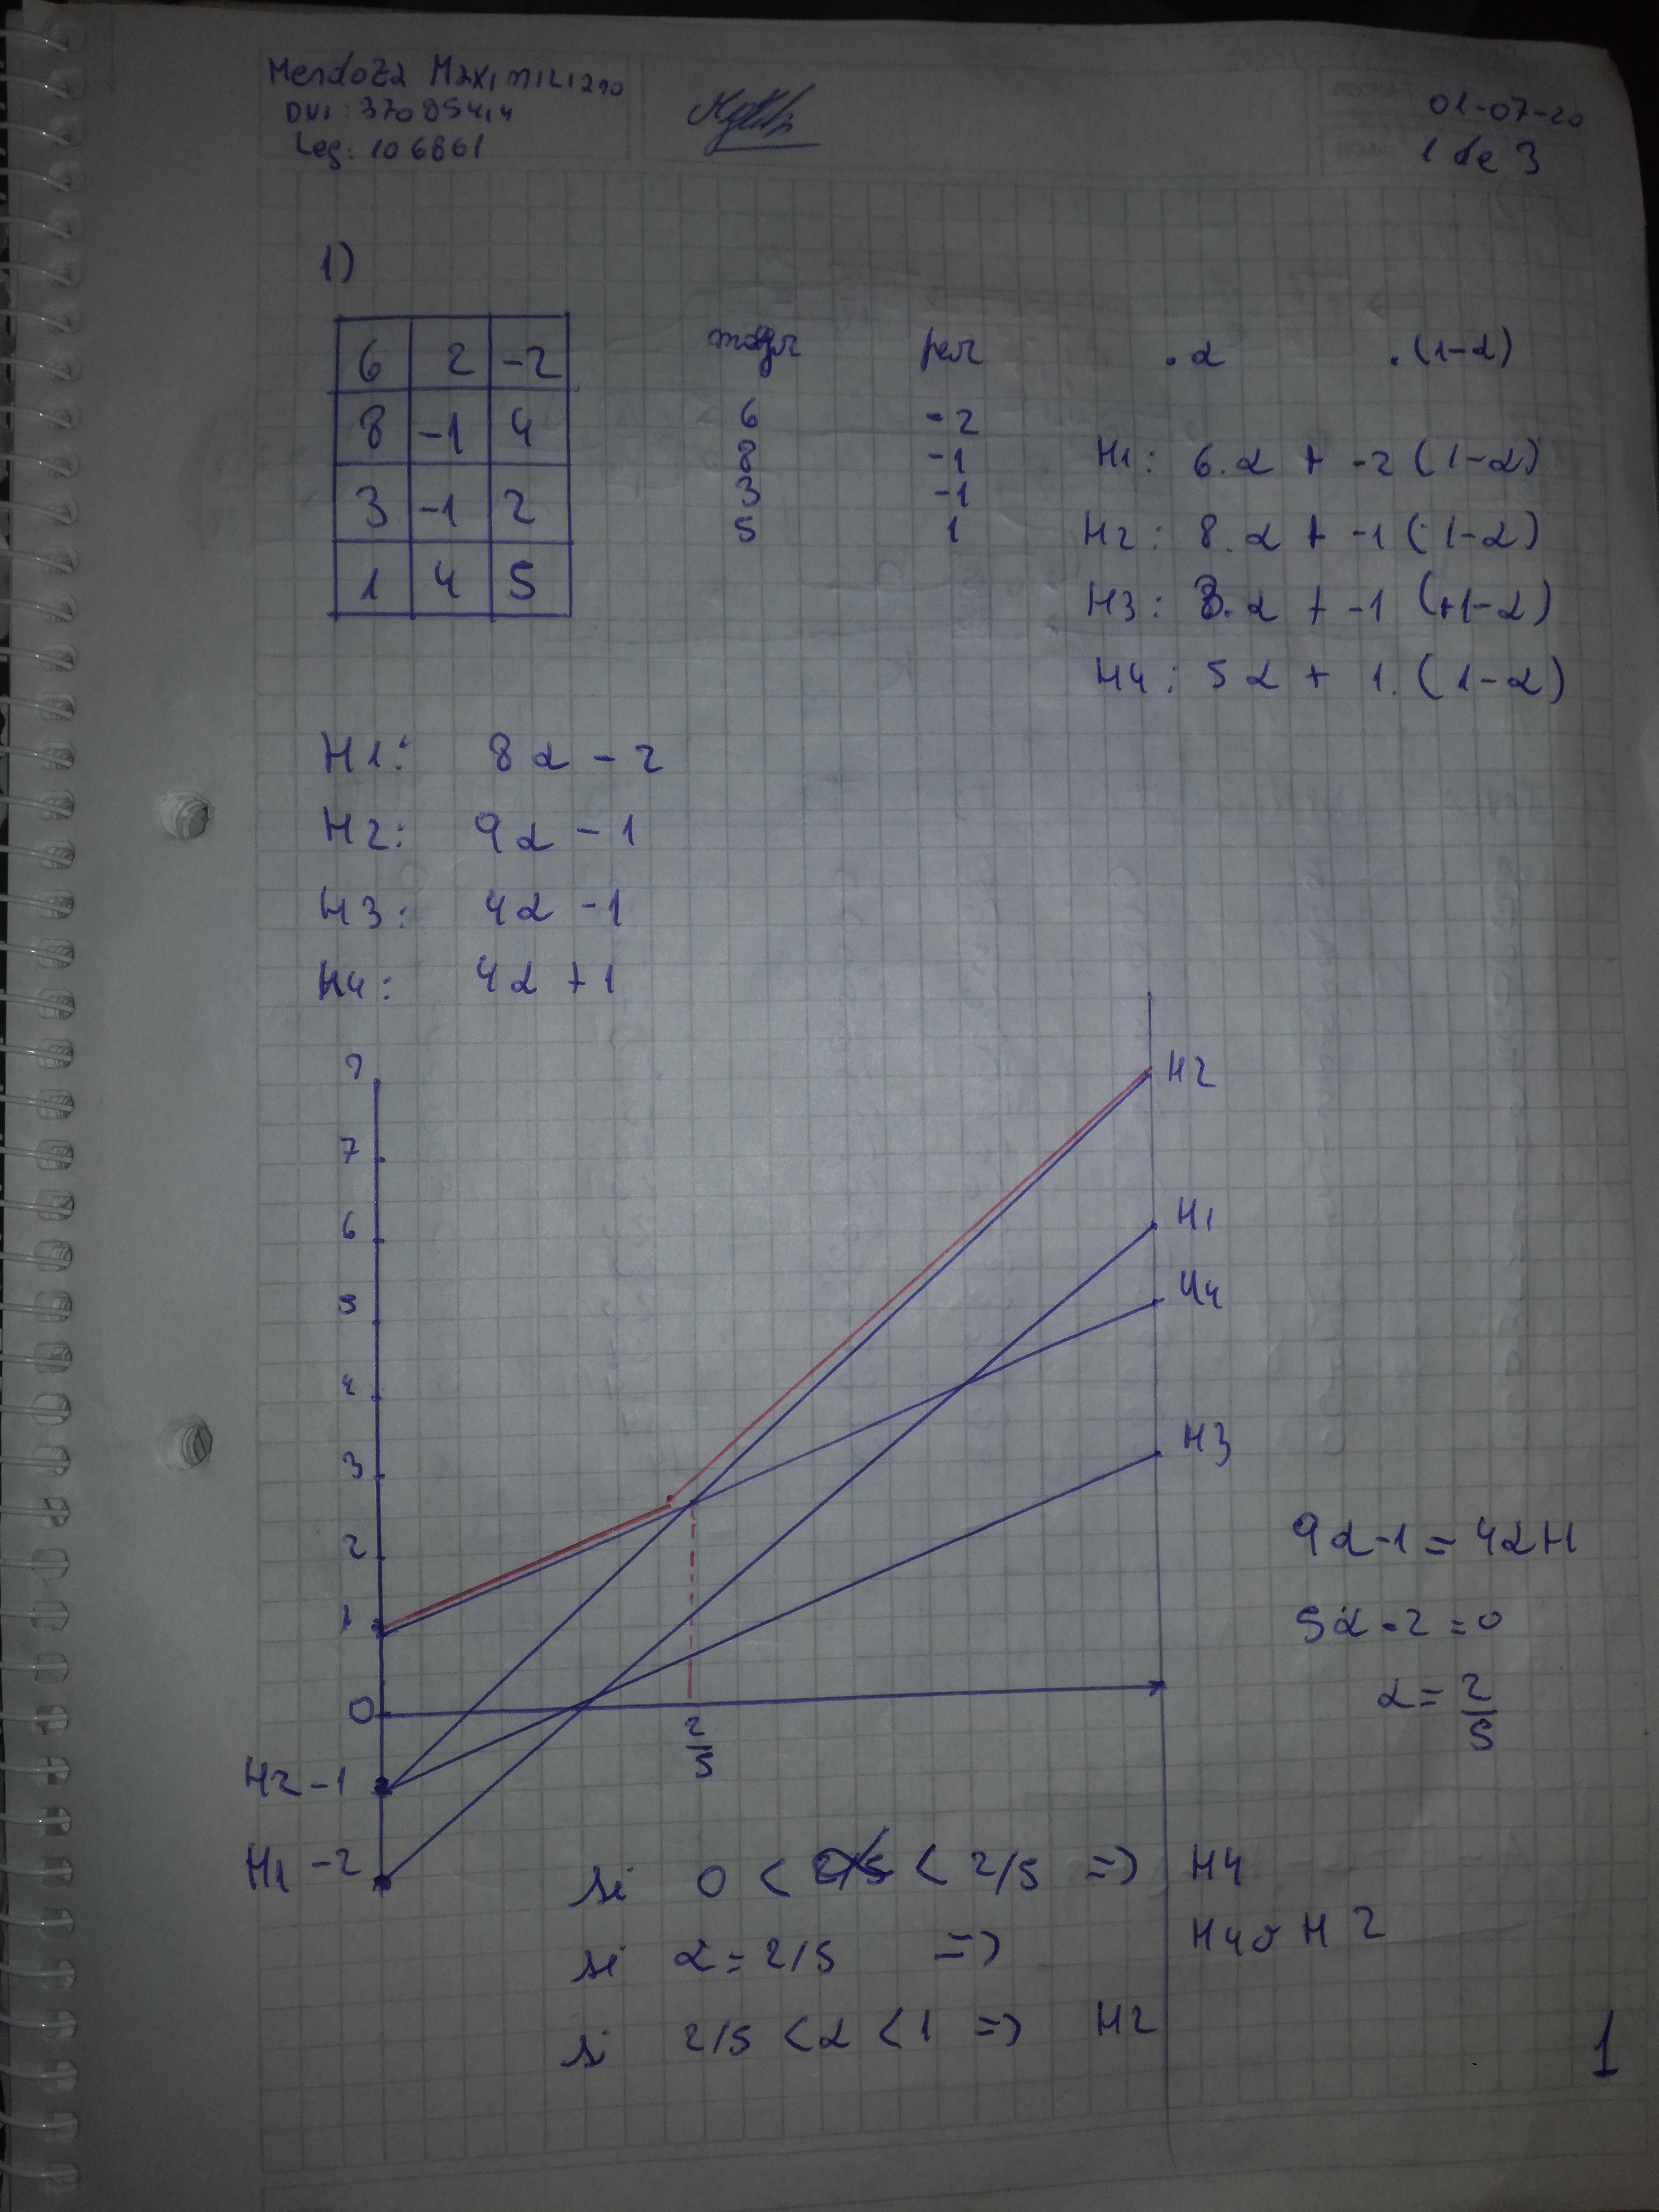 Mendoza Maximiliano
DNI: 37085414
Leg: 106861
01-07-20
1 de 3
1)
6 2 -2
8 -1 4
3 -1 2
1 4 5
mejor peor .α .(1-α)
6 -2
8 -1
3 -1
5 1
H1: 6.α + -2 (1-α)
H2: 8.α + -1 (1-α)
H3: 3.α + -1 (+1-α)
H4: 5α + 1.(1-α)
H1: 8α - 2
H2: 9α - 1
H3: 4α - 1
H4: 4α + 1
7
6
5
4
3
2
1
0
H2 -1
H1 -2
H2
H1
H4
H3
2/5
9α-1 = 4α+1
5α-2 = 0
α = 2/5
si 0 < < 2/5 => H4
si α = 2/5 => H4 o H2
si 2/5 < α < 1 => H2
1